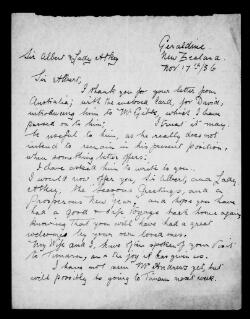 Geraldine
New Zealand.
Nov 17th/36
Sir Albert & Lady Atkey
Sir Albert,
I thank you for your letter from
Australia; with the enclosed Card, for David,
introducing him to Mr Gibbs, which I have
passed on to him; I trust it may
be useful to him, as he really does not
intend to remain in his present position,
when something better offers.
I have asked him to write to you.
I would now offer you Sir Albert, and Lady
Atkey, the Seasons Greetings, and a
Prosperous New year, and hope you have
had a good & safe Voyage back home again
Knowing that you will have had a great
welcome by your own loved ones.
My Wife and I, have often spoken of your Visit
to Timaru, and the joy it has given us.
I have not seen Mr Andrews yet, but
will possibly be going to Timaru next week.